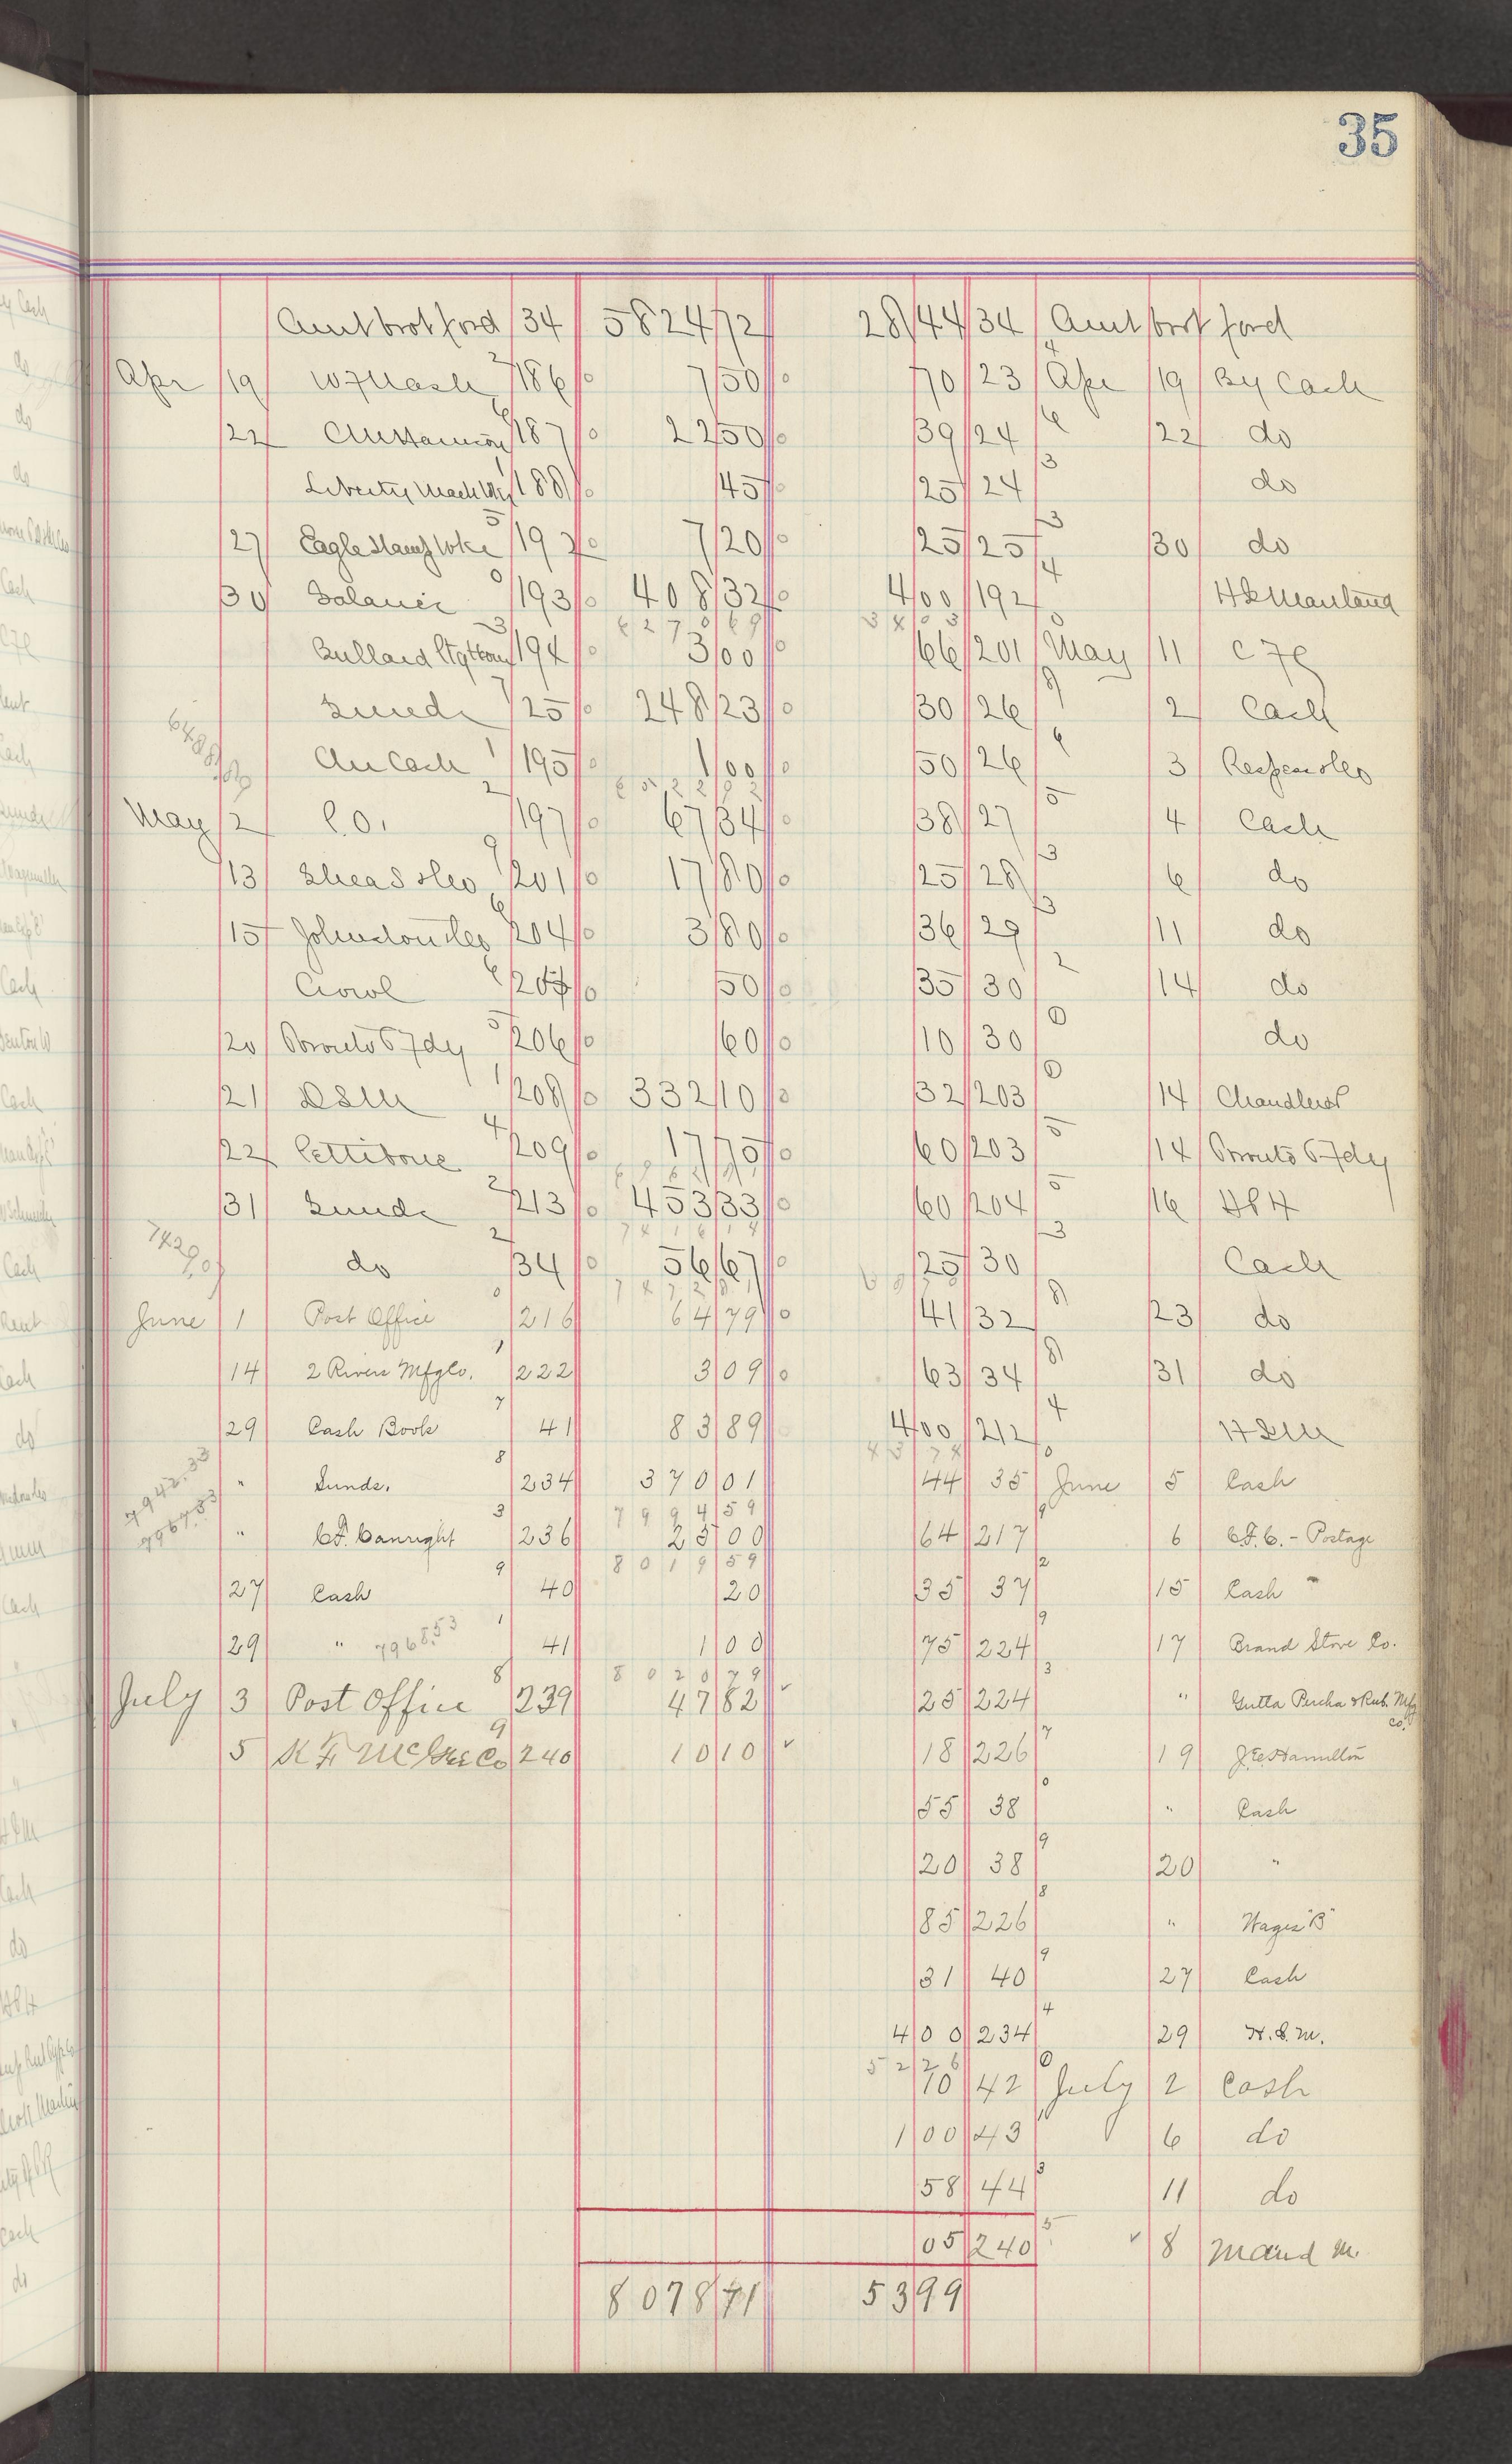 35
Amt brot ford 34 5824 72 28 44 34 Amt brot ford
Apr 19 W F Nash 186 7 50 70 23 Apr 19 By Cash
22 187 22 50 39 24 22 do
Liberty Mach Wks 188 45 25 24 do
27 Eagle Stamp Wks 192 7 20 25 25 30 do
30 Balance 193 408 32 4 00 192 H L Mauland
6270 69 34 03
Bullard 194 3 00 66 201 May 11 C F C
Sunds 25 248 23 30 26 2 Cash
Cash 195 1 00 50 26 3
6522 92
May 2 P.O. 197 67 34 38 27 4 Cash
13 Shea S & Co 201 17 80 25 28 6 do
15 Johnston & Co 204 3 80 36 29 11 do
Crowl 50 35 30 14 do
20 Toronto Fdy 206 60 10 30 do
21 DSM 208 332 10 32 203 14 Chandler
22 Pettibone 209 17 75 60 203 14 Toronto Fdy
31 Sunds 213 453 33 60 204 16 H P H
7416 14
do 34 56 67 25 30 Cash
7472 81
June 1 Post Office 216 64 79 41 32 23 do
14 2 Rivers Mfg Co. 222 3 09 63 34 31 do
29 Cash Book 41 83 89 4 00 212 H L M
43 74
" Sunds. 234 370 01 44 35 June 5 Cash
7942.33
7967.33
7994 59
" C.F. Canright 236 25 00 64 217 6 C.F.C. - Postage
8019 59
27 Cash 40 20 35 37 15 Cash "
29 " 7968.53 41 1 00 75 224 17 Brand Stove Co.
8020 79
July 3 Post Office 239 47 82 25 224 " Gutta Percha & Rub. Mfg
Co.
5 K F McGee Co 240 10 10 18 226 19 J.E. Hamilton
55 38 " Cash
20 38 20 "
85 226 " Wages "B"
31 40 27 Cash
4 00 234 29 H.L.M.
52 26
10 42 July 2 Cash
1 00 43 6 do
58 44 11 do
05 240 8 Maud M.
8078 71 53 99